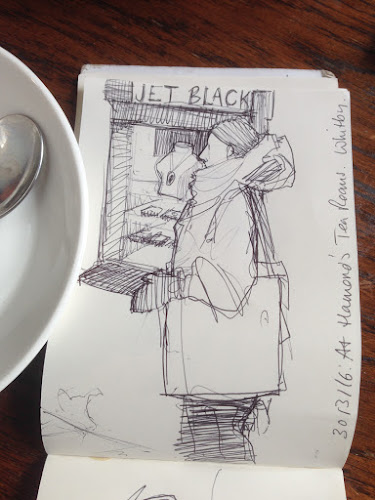 JET BLACK
30/3/16: At Hamond's Tea Rooms. Whitby.